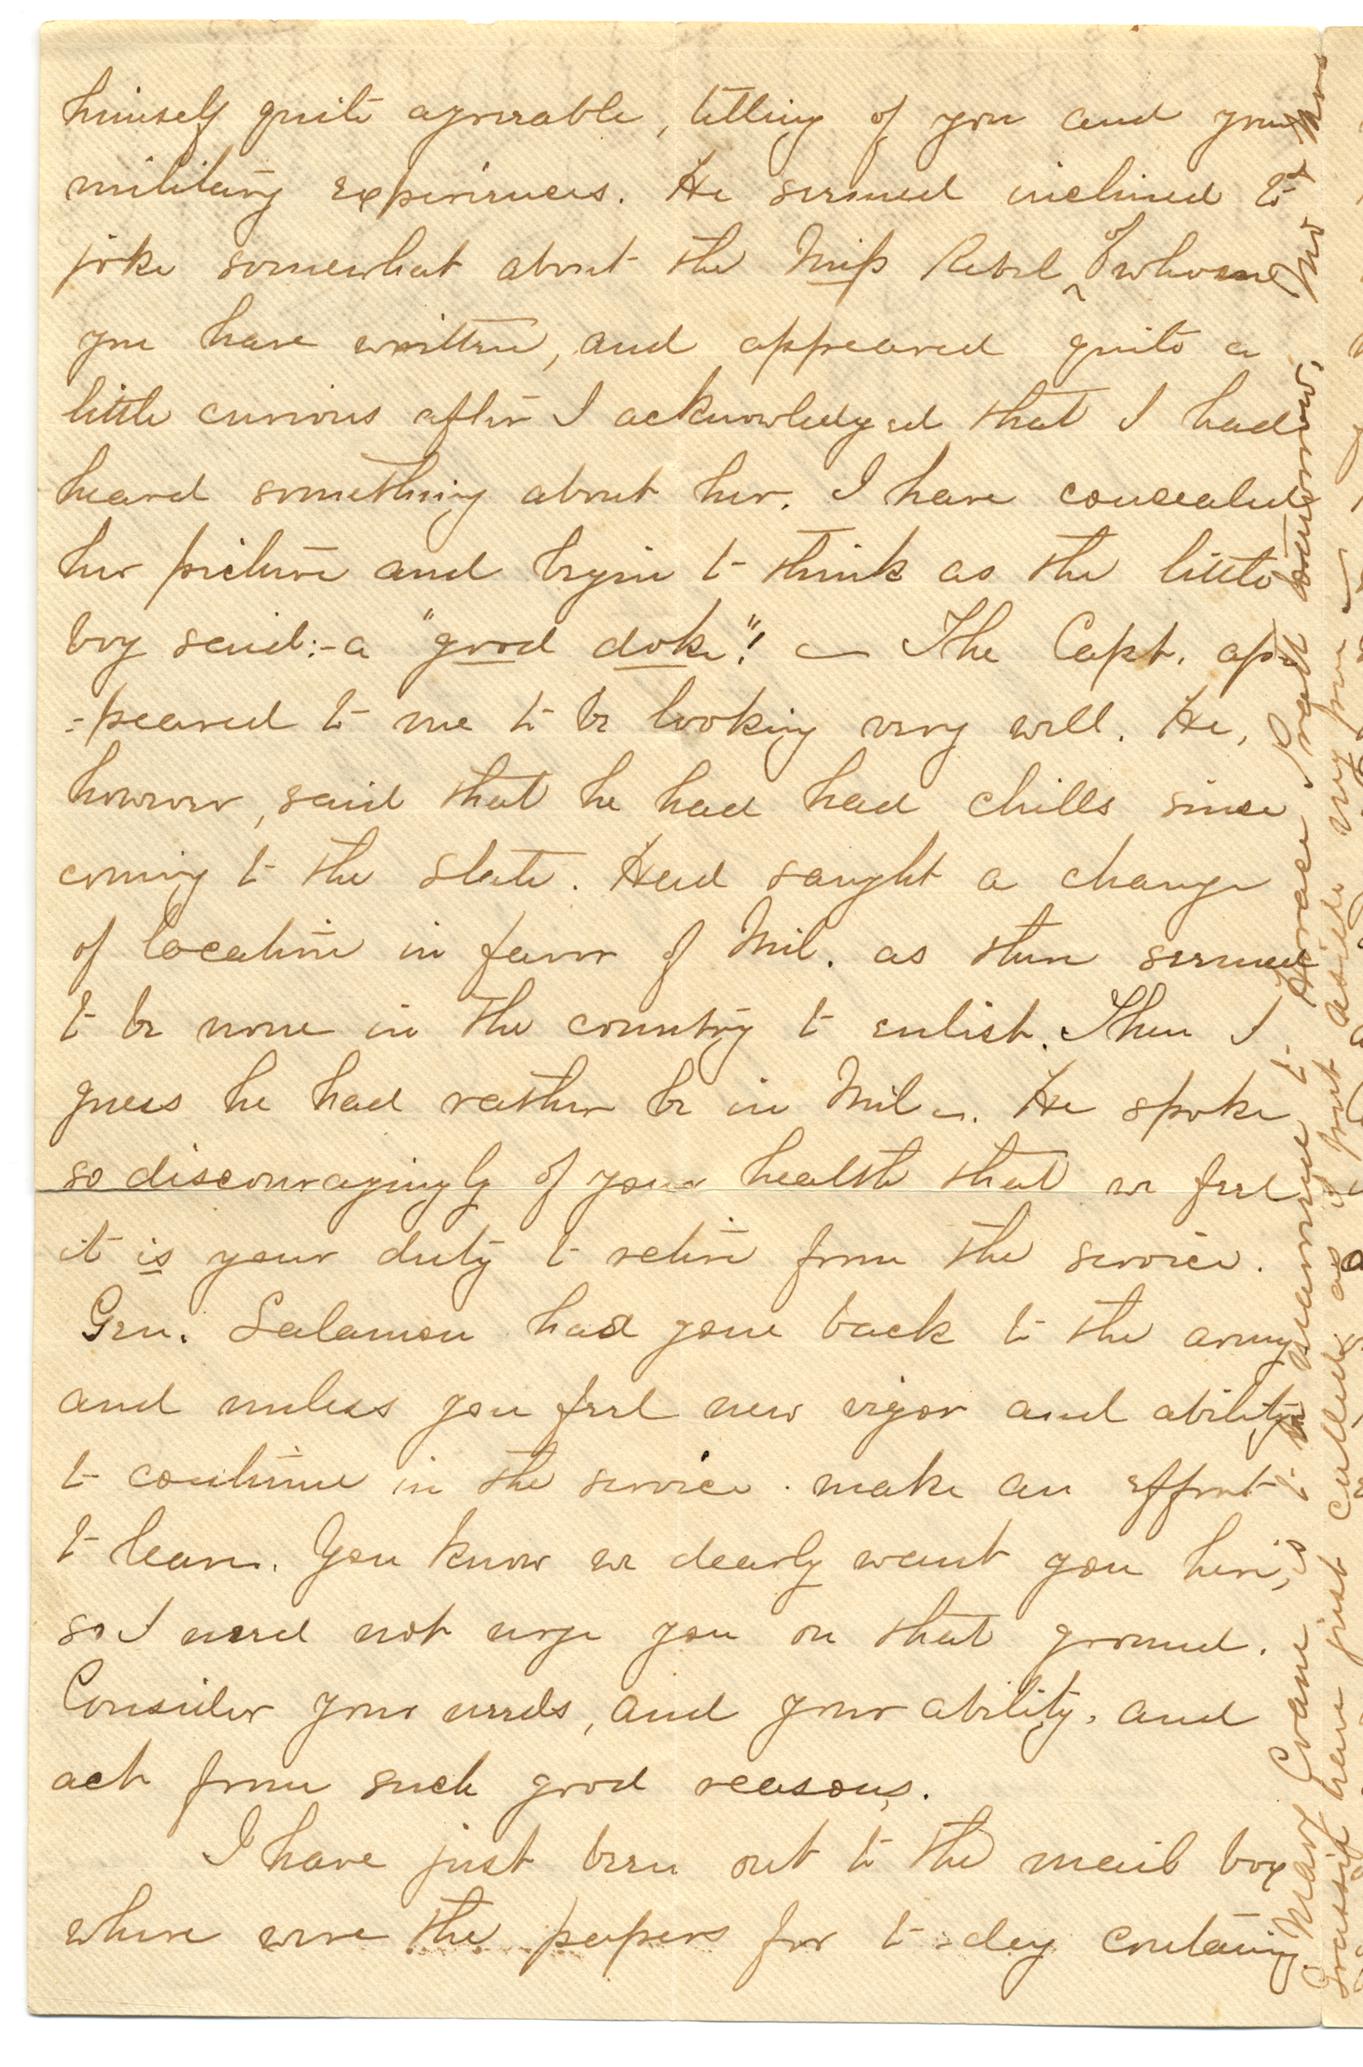 himself quite agreeable, telling of you and your
military experiences. He seemed inclined to
joke somewhat about the Miss Rebel of whom
you have written, and appeared quite a
little curious after I acknowledged that I had
heard something about her. I have concealed
her picture and begin to think as the little
boy said:- a "good doke"! — The Capt. ap-
-peared to me to be looking very well. He,
however, said that he had had chills since
coming to the state. Had saught a change
of location in favor of Mil. as there seemed
to be none in the country to enlist. Then I
guess he had rather be in Mil —. He spoke
so discouragingly of your health that we feel
it is your duty to retire from the service.
Gen. Salamon had gone back to the army
and unless you feel new vigor and ability
to continue in the service. make an effort
to leave. You know we dearly want you here,
so I need not urge you on that ground.
Consider your needs, and your ability, and
act from such good reasons.
I have just been out to the mail box
where were the papers for to-day containing
Mary Evans is to be married to Horace Pratt tomorrow. Mr & Mrs
have just called as I put aside my pen —